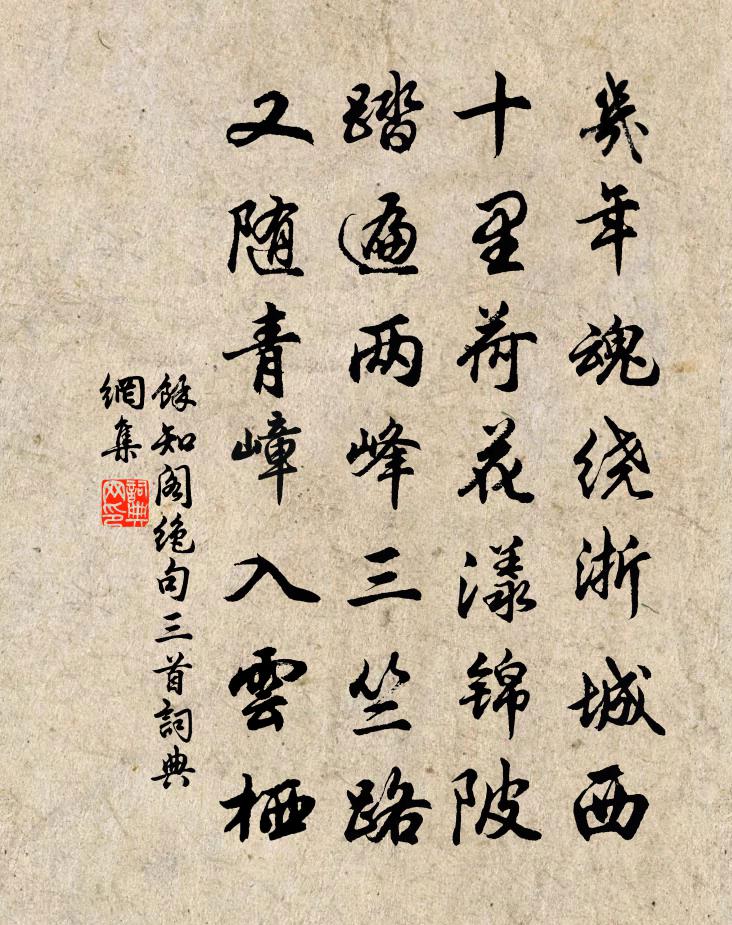 幾年魂绕浙城西
十里荷花漾锦陂
踏遍两峰三竺路
又随青嶂入雲栖
餘知阁绝句三首詞典
網集
詞典网印